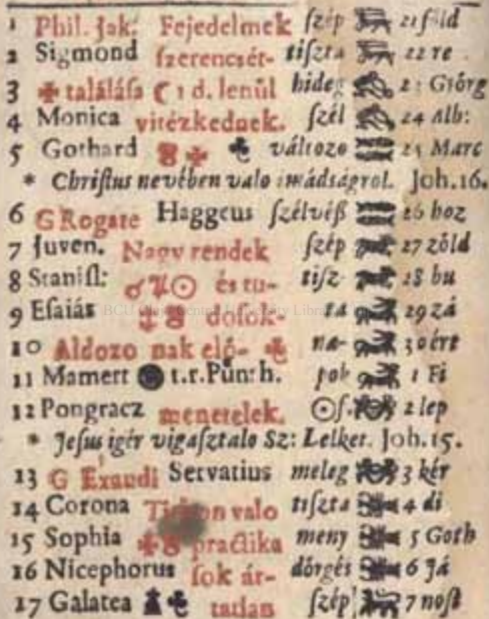 1 Phil. Jak. Fejedelmek ſzép 21 föld
2 Sigmond ſzerencsét- tiſzta 22 re
3 ✠ találáſa ☾ 1 d. lenûl hideg 23 Giörg
4 Monica vitézkednek. ſzél 24 Alb:
5 Gothard ✠ változo 25 Marc
* Chriſtus nevében valo imádságrol. Joh. 16.
6 G Rogate Haggeus ſzélvéß 26 hoz
7 Juven. Nagy rendek ſzép 27 zöld
8 Staniſl: ♂ ♃ ☉ és tu- tiſz- 28 bu
9 Eſaiás doſok- ta 29 zá
10 Aldozo nak elö- na- 30 ért
11 Mamert ● t.r. Pünr h. pok 1 Fi
12 Pongracz menetelek. ☉ ſ. 2 lep
* Jeſus igér vigaſztalo Sz: Lelket. Joh. 15.
13 G Exaudi Servatius meleg 3 kér
14 Corona valo tiſzta 4 di
15 Sophia ✠ practika meny 5 Goth
16 Nicephorus ſok ár- dörgés 6 Já
17 Galatea tatlan ſzép 7 noſt